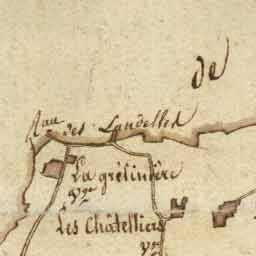 de
Rau des Landelles
La grélinière
Vge
Les Châtelliers
Vge